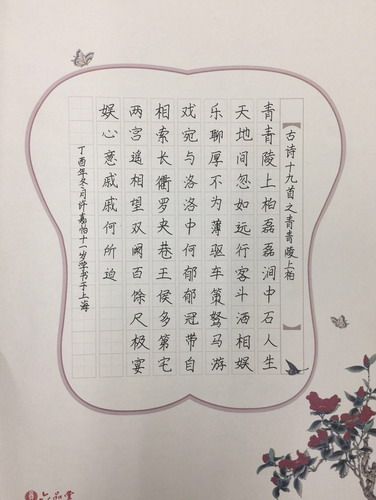 【古诗十九首之青青陵上柏】
青青陵上柏磊磊涧中石人生
天地间忽如远行客斗酒相娱
乐聊厚不为薄驱车策驽马游
戏宛与洛洛中何郁郁冠带自
相索长衢罗夹巷王侯多第宅
两宫遥相望双阙百馀尺极宴
娱心意戚戚何所迫
丁酉年冬月许嘉怡十一岁学书于上海
六品堂